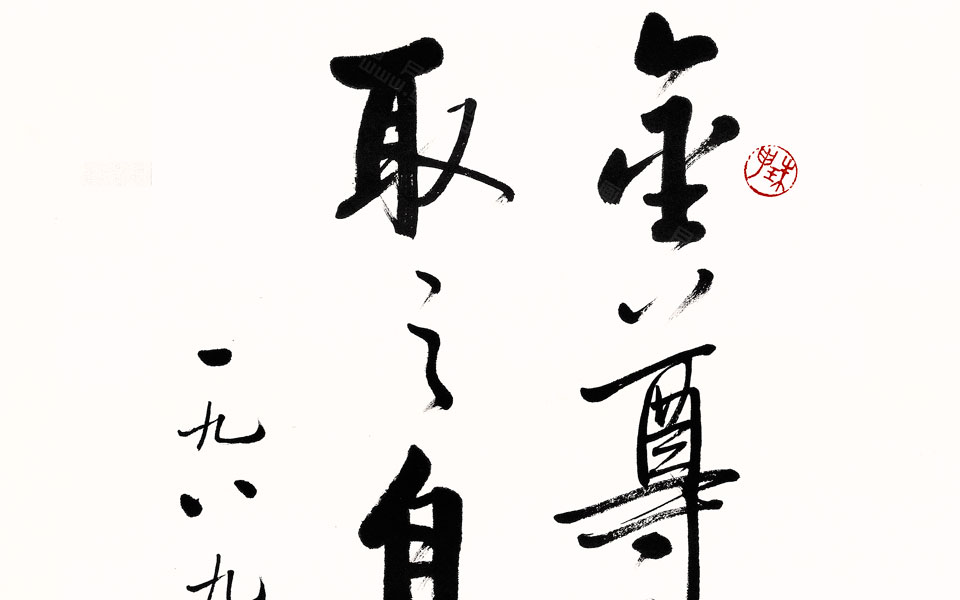 尊
取之自
一九八九